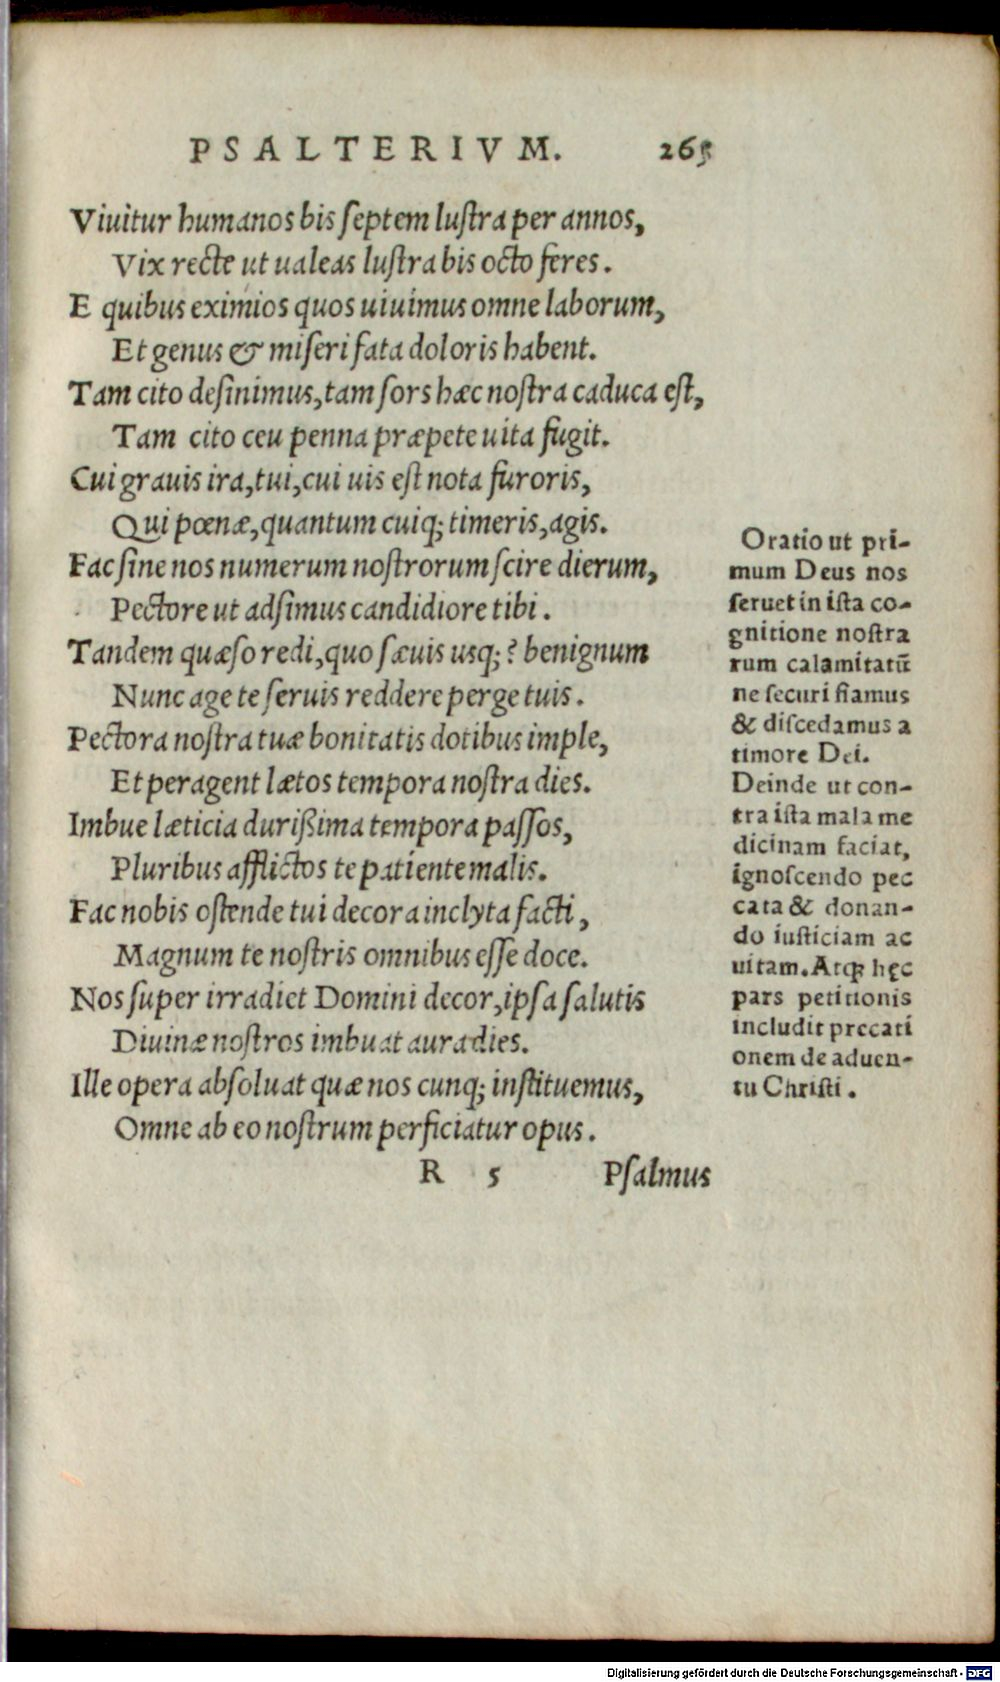 PSALTERIVM. 265
Viuitur humanos bis ſeptem luſtra per annos,
Vix recte ut ualeas luſtra bis octo feres.
E quibus eximios quos uiuimus omne laborum,
Et genus & miſeri fata doloris habent.
Tam cito deſinimus, tam ſors hæc noſtra caduca eſt,
Tam cito ceu penna præpete uita fugit.
Cui grauis ira, tui, cui uis eſt nota furoris,
Qui pœnæ, quantum cuiq; timeris, agis.
Fac ſine nos numerum noſtrorum ſcire dierum,
Pectore ut adſimus candidiore tibi.
Tandem quæſo redi, quo ſæuis uſq;? benignum
Nunc age te ſeruis reddere perge tuis.
Pectora noſtra tuæ bonitatis dotibus imple,
Et peragent lætos tempora noſtra dies.
Imbue læticia durißima tempora paſſos,
Pluribus afflictos te patiente malis.
Fac nobis oſtende tui decora inclyta facti,
Magnum te noſtris omnibus eſſe doce.
Nos ſuper irradiet Domini decor, ipſa ſalutis
Diuinæ noſtros imbuat aura dies.
Ille opera abſoluat quæ nos cunq; inſtituemus,
Omne ab eo noſtrum perficiatur opus.
R 5 Pſalmus
Oratio ut pri-
mum Deus nos
ſeruet in iſta co-
gnitione noſtra
rum calamitatũ
ne ſecuri fiamus
& diſcedamus a
timore Dei.
Deinde ut con-
tra iſta mala me
dicinam faciat,
ignoſcendo pec
cata & donan-
do iuſticiam ac
uitam. Atq; hęc
pars petitionis
includit precati
onem de aduen-
tu Chriſti.
Digitalisierung gefördert durch die Deutsche Forschungsgemeinschaft - DFG